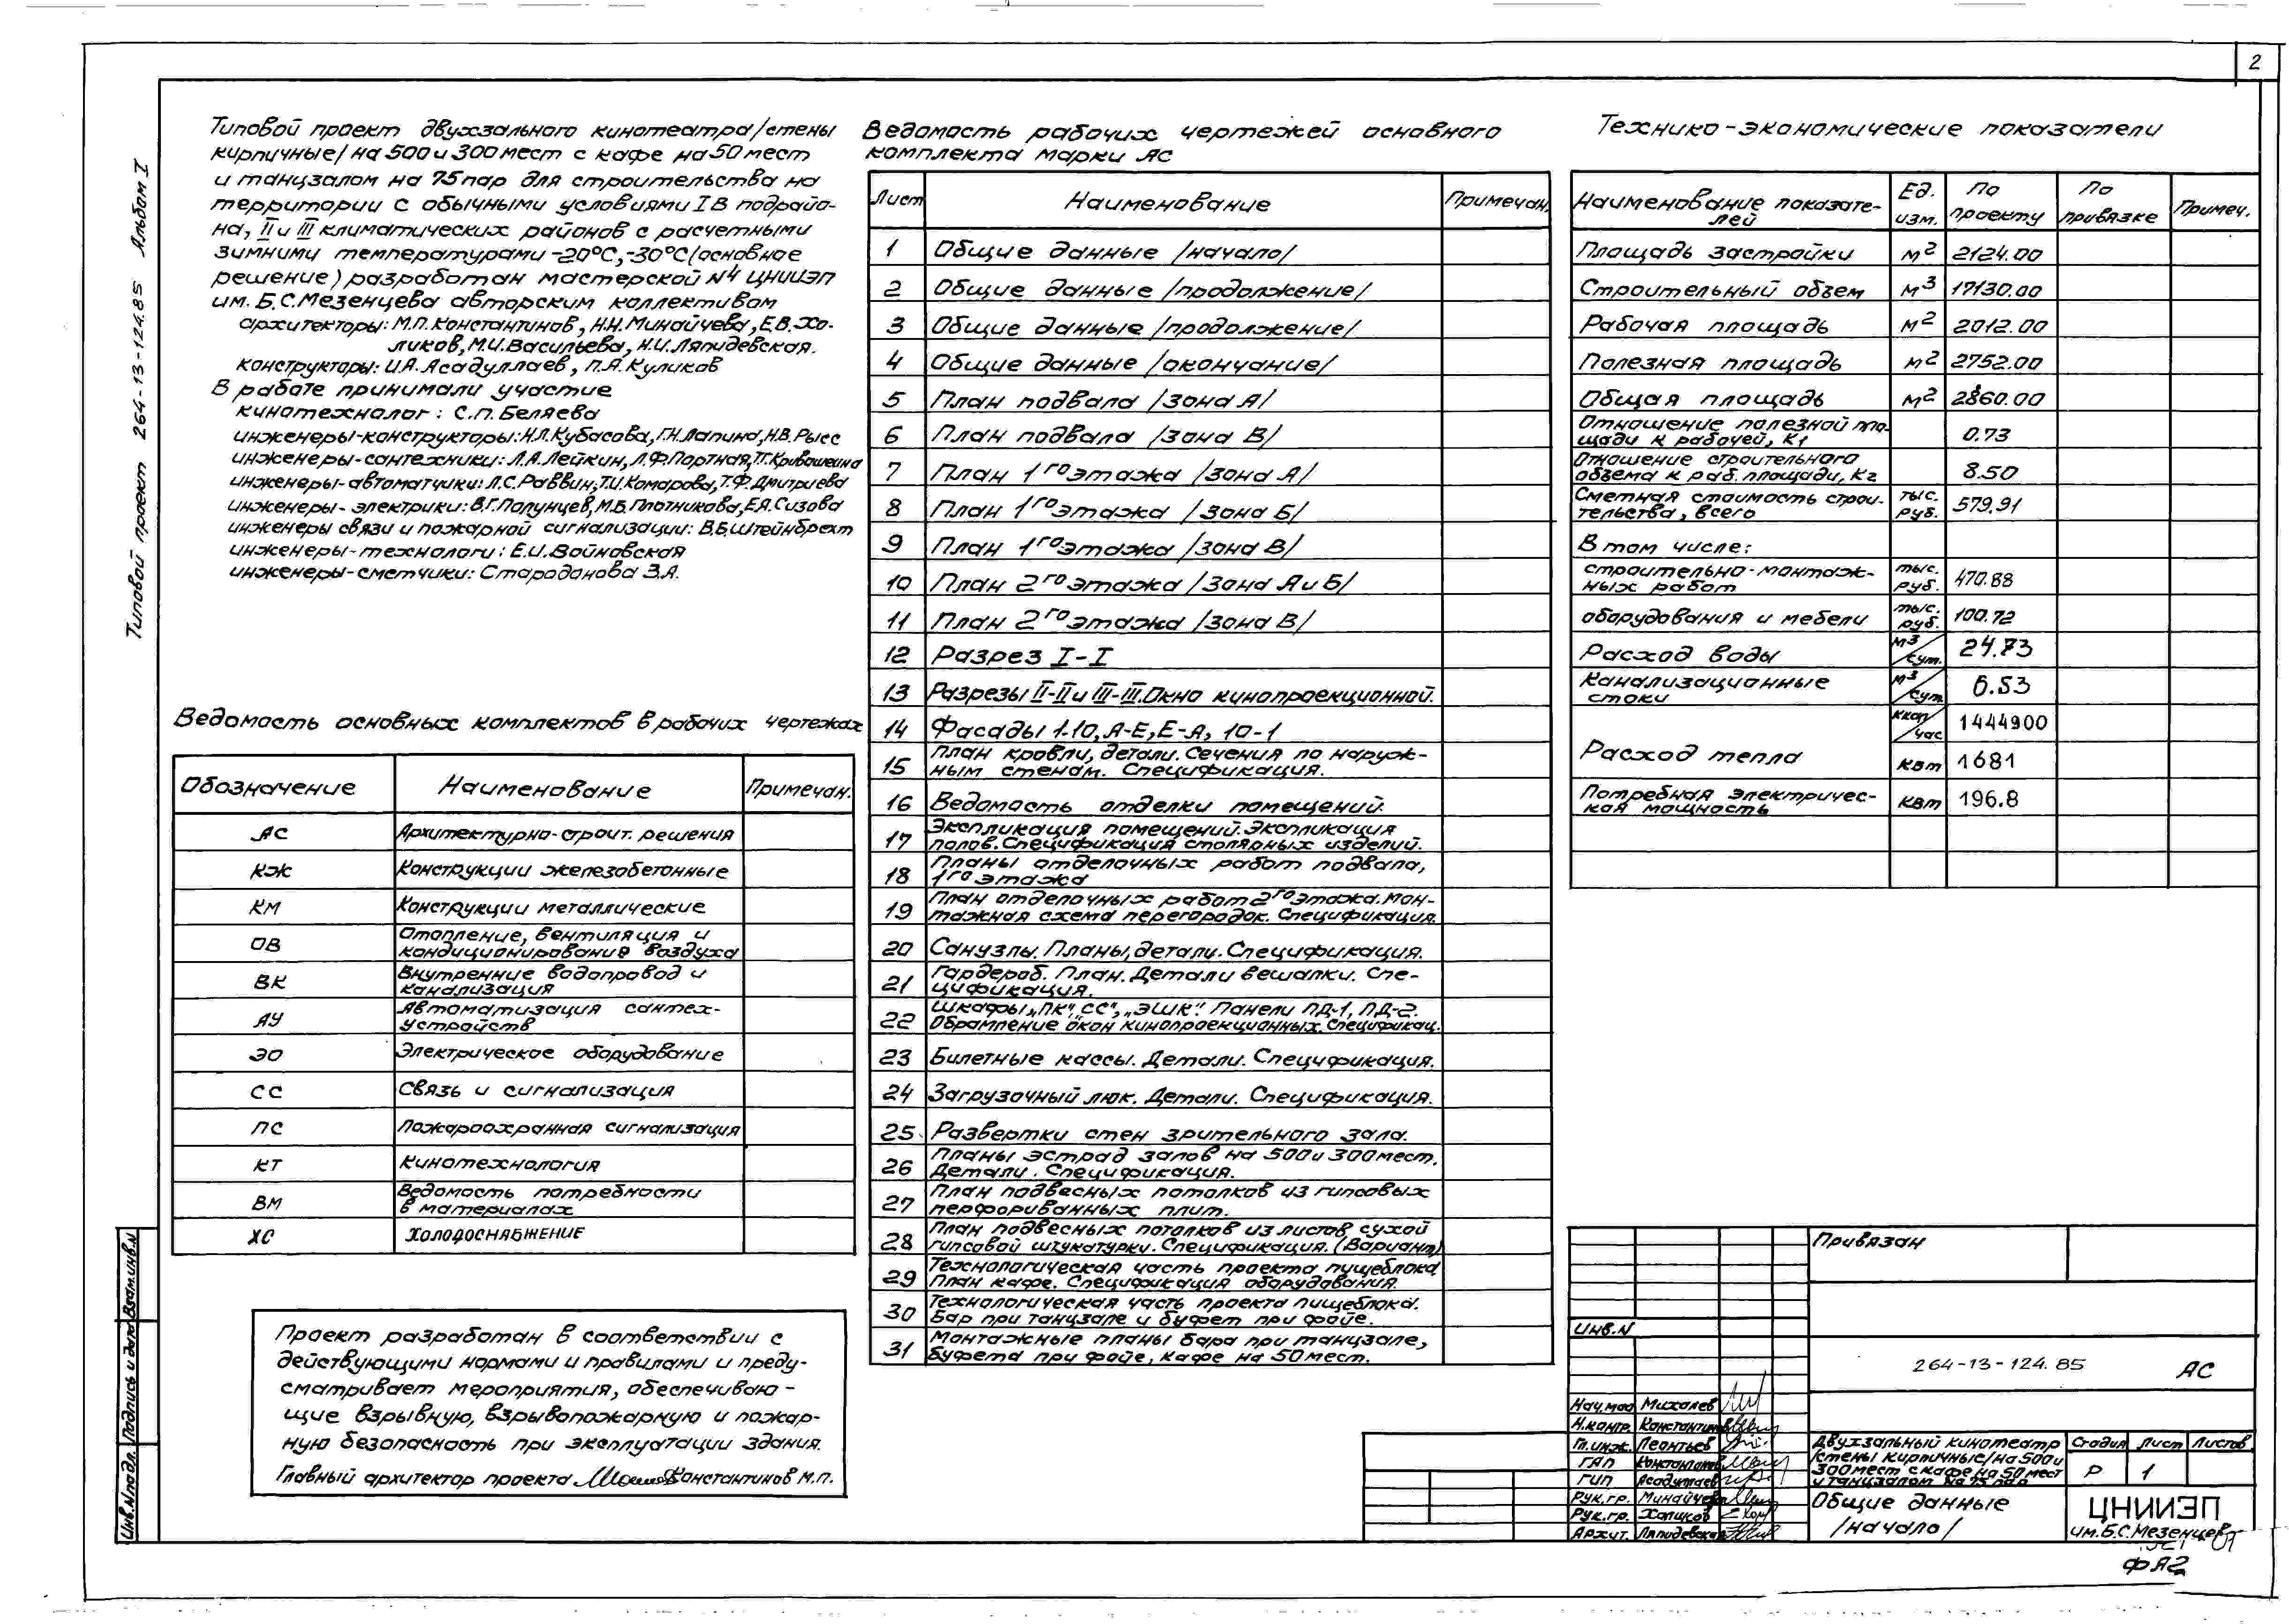 2
Типовой проект 264-13-124.85 Альбом I
Типовой проект двухзального кинотеатра/стены
кирпичные/ на 500 и 300 мест с кафе на 50 мест
и танцзалом на 75 пар для строительства на
территории с обычными условиями I В подрайо-
на, II и III климатических районов с расчетными
зимними температурами -20°С, -30°С (основное
решение) разработан мастерской №4 ЦНИИЭП
им. Б.С. Мезенцева авторским коллективом
архитекторы: М.П. Константинов, Н.Н. Минайчева, Е.В. Хо-
ликов, М.И. Васильева, Н.И. Ляпидевская.
конструкторы: И.А. Асадуллаев, П.А. Куликов
В работе принимали участие
кинотехнолог: С.П. Беляева
инженеры-конструкторы: Н.Л. Кубасова, Г.Н. Лапина, Н.В. Рысс
инженеры-сантехники: Л.А. Лейкин, Л.Ф. Портная, Т.Г. Кривошеина
инженеры-автоматчики: Л.С. Раввин, Т.И. Комарова, Т.Ф. Дмитриева
инженеры-электрики: В.Г. Полунцев, М.Б. Плотникова, Е.Я. Сизова
инженеры связи и пожарной сигнализации: В.Б. Штейнбрехт
инженеры-технологи: Е.И. Войновская
инженеры-сметчики: Староданова З.А.
Ведомость основных комплектов в рабочих чертежах
Обозначение Наименование Примечан.
АС Архитектурно-строит. решения
КЖ Конструкции железобетонные
КМ Конструкции металлические
ОВ Отопление, вентиляция и
кондиционирование воздуха
ВК Внутренние водопровод и
канализация
АУ Автоматизация сантех-
устройств
ЭО Электрическое оборудование
СС Связь и сигнализация
ПС Пожароохранная сигнализация
КТ Кинотехнология
ВМ Ведомость потребности
в материалах
ХС Холодоснабжение
Проект разработан в соответствии с
действующими нормами и правилами и преду-
сматривает мероприятия, обеспечиваю-
щие взрывную, взрывопожарную и пожар-
ную безопасность при эксплуатации здания.
Главный архитектор проекта Константинов М.П.
Ведомость рабочих чертежей основного
комплекта марки АС
Лист Наименование Примечан.
1 Общие данные /начало/
2 Общие данные /продолжение/
3 Общие данные /продолжение/
4 Общие данные /окончание/
5 План подвала /зона А/
6 План подвала /зона В/
7 План 1го этажа /зона А/
8 План 1го этажа /зона Б/
9 План 1го этажа /зона В/
10 План 2го этажа /зона А и Б/
11 План 2го этажа /зона В/
12 Разрез I-I
13 Разрезы II-II и III-III. Окно кинопроекционной.
14 Фасады 1-10, А-Е, Е-А, 10-1
15 План кровли, детали. Сечения по наруж-
ным стенам. Спецификация.
16 Ведомость отделки помещений.
17 Экспликация помещений. Экспликация
полов. Спецификация столярных изделий.
18 Планы отделочных работ подвала,
1го этажа
19 План отделочных работ 2го этажа. Мон-
тажная схема перегородок. Спецификация.
20 Санузлы. Планы, детали. Спецификация.
21 Гардероб. План. Детали вешалки. Спе-
цификация.
22 Шкафы „ПК", „СС", „ЭШК". Панели ПД-1, ПД-2.
Обрамление окон кинопроекционных. Специфокац.
23 Билетные кассы. Детали. Спецификация.
24 Загрузочный люк. Детали. Спецификация.
25 Развертки стен зрительного зала.
26 Планы эстрад залов на 500 и 300 мест.
Детали. Спецификация.
27 План подвесных потолков из гипсовых
перфорированных плит.
28 План подвесных потолков из листов сухой
гипсовой штукатурки. Спецификация. (Вариант)
29 Технологическая часть проекта пищеблока
План кафе. Спецификация оборудования.
30 Технологическая часть проекта пищеблока.
Бар при танцзале и буфет при фойе.
31 Монтажные планы бара при танцзале,
буфета при фойе, кафе на 50 мест.
Технико-экономические показатели
Наименование показате-
лей
Ед.
изм.
По
проекту
По
привязке
Примеч.
Площадь застройки м² 2124.00
Строительный объем м³ 17130.00
Рабочая площадь м² 2012.00
Полезная площадь м² 2752.00
Общая площадь м² 2860.00
Отношение полезной пло-
щади к рабочей, К1 0.73
Отношение строительного
объема к раб. площади, К2 8.50
Сметная стоимость строи-
тельства, всего тыс. руб. 579.91
В том числе:
строительно-монтаж-
ных работ тыс. руб. 470.88
оборудования и мебели тыс. руб. 100.72
Расход воды м³/сут. 24.73
Канализационные
стоки м³/сут 6.53
Расход тепла ккал/час 1444900
квт 1681
Потребная электричес-
кая мощность квт 196.8
Привязан
Инв.N
264-13-124.85 АС
Нач.мас Михалев
Н.контр. Константинов
Гл.инж. Леонтьев
ГАП Константинов
ГИП Асадуллаев
Рук.гр. Минайчева
Рук.гр. Холиков
Архит. Ляпидевская
Двухзальный кинотеатр
/стены кирпичные/ на 500 и
300 мест с кафе на 50 мест
и танцзалом на 75 пар
Стадия Лист Листов
Р 1
Общие данные
/начало/
ЦНИИЭП
им. Б.С. Мезенцева
ФА2
Инв.N подл. Подпись и дата Взам.инв.N